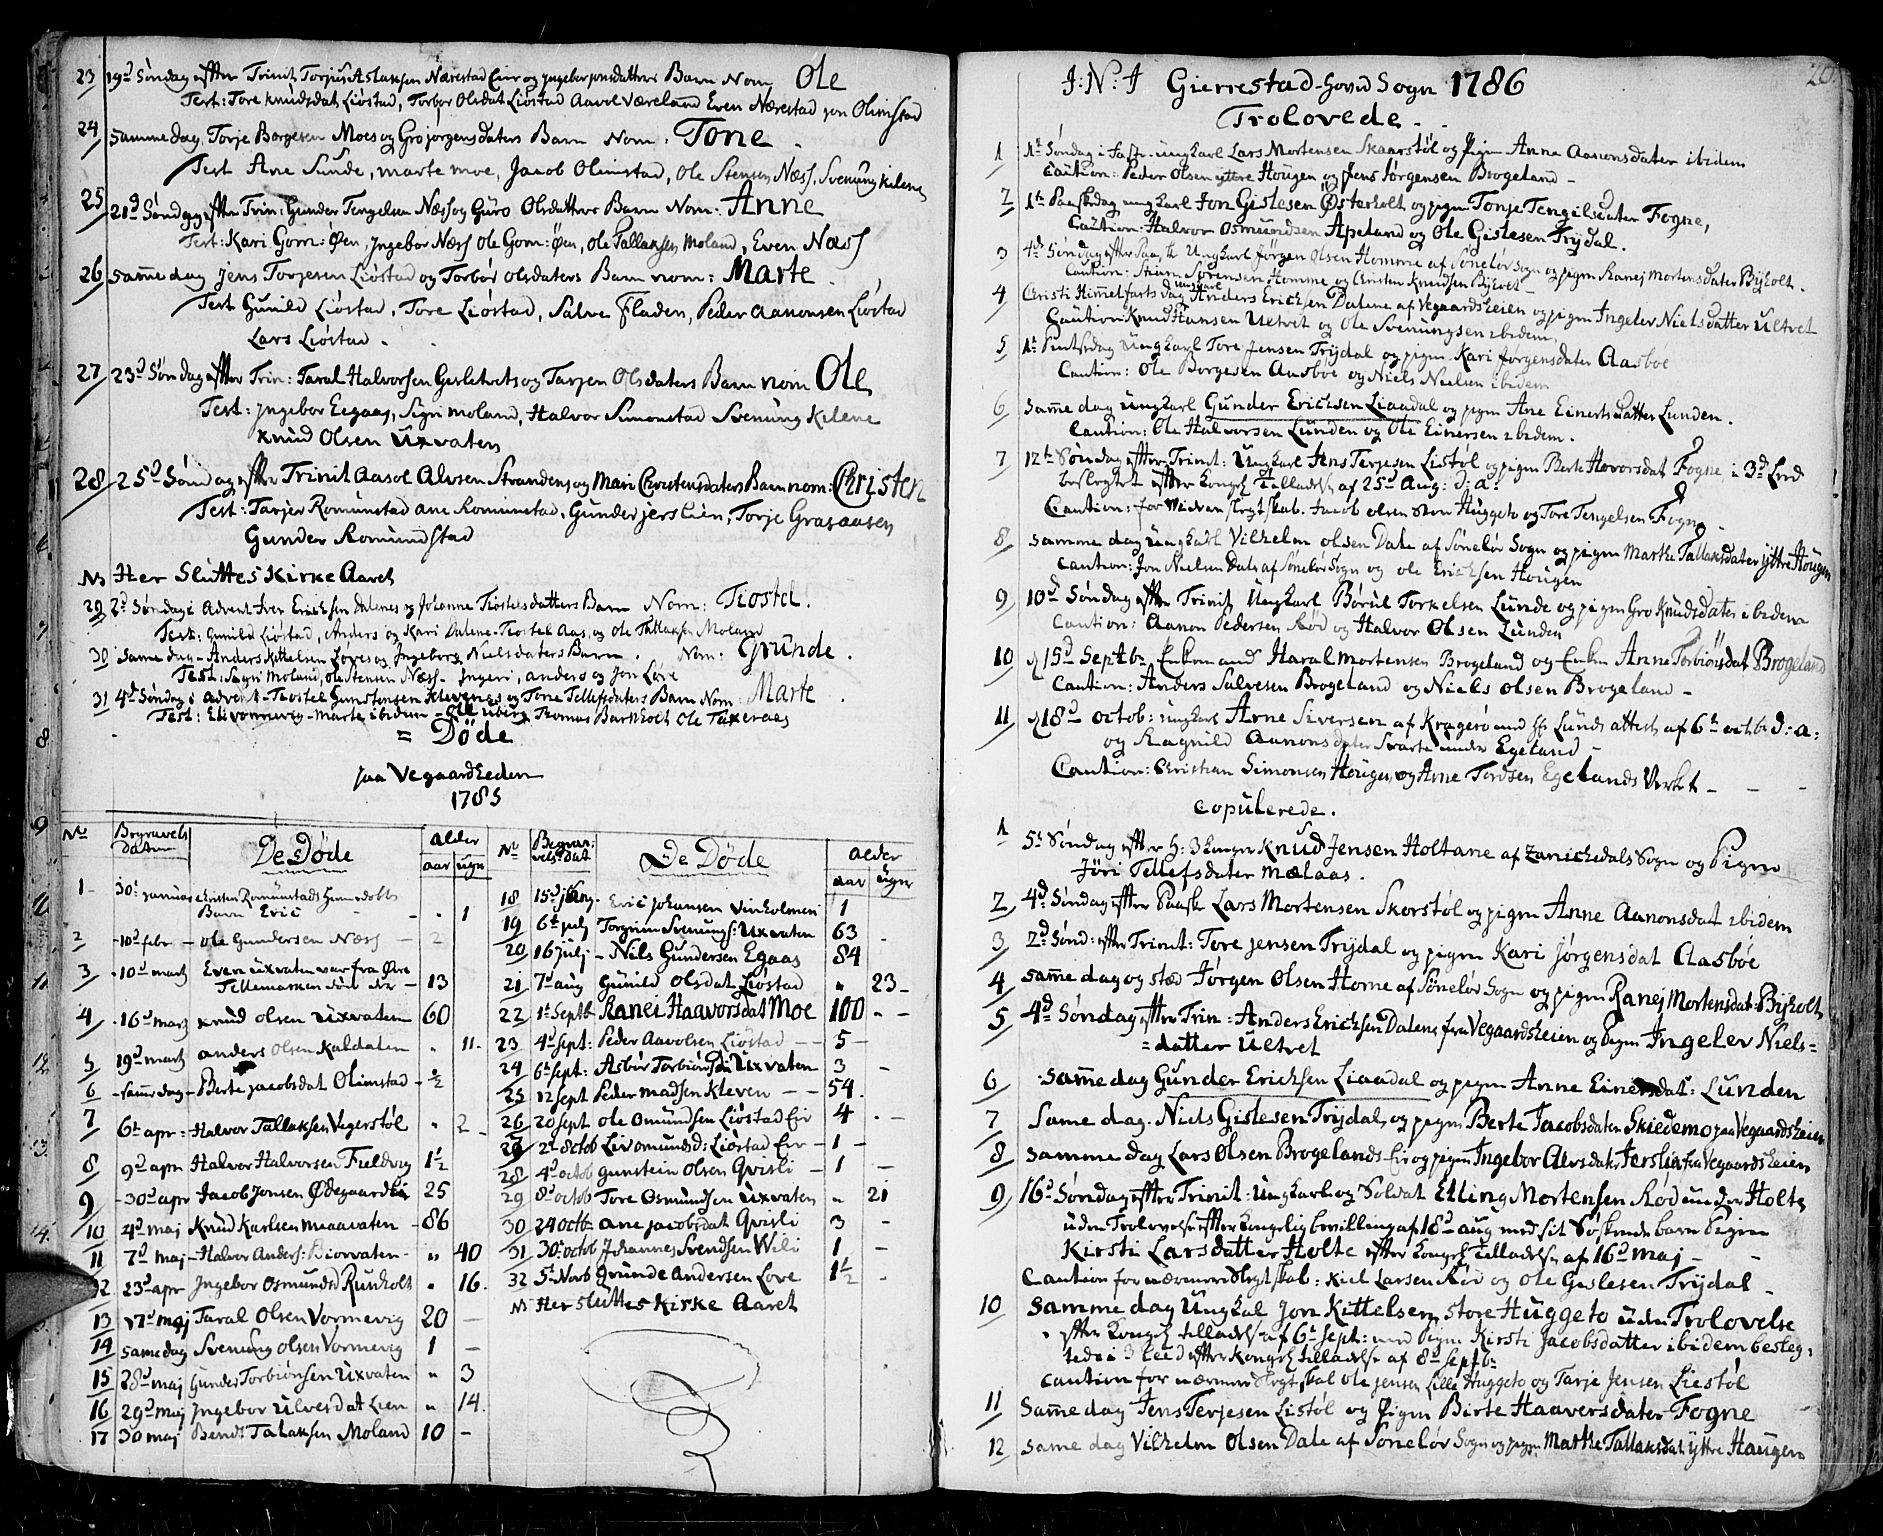 23 19d Søndag efter Trinit Torjus Aslaksen Nærestad Eier og Ingebor Jonsdatters Barn Nom Ole
Test: Tore Knudsdat Liøstad, Torbor Olsdat Liøstad Aavol Væreland Even Nærestad Jon Olimstad
24 Samme dag, Torje Borgesen Moes og Gro Jørgensdaters Barn Nom: Tone
Test Ane Sunde, Marte Moe, Jacob Olimstad, Ole Stensen Næss, Svenung Kilene
25 21d Søndag efter Trin: Gunder Tengelsen Næss og Guro Olsdatters Barn Nom: Anne
Test: Kari Gom: Øen, Ingebor Næss Ole Gom: Øen, Ole Tallaksen Moland, Even Næss
26 Same dag Jens Torjesen Liøstad og Torbor Olsdaters Barn nom: Marte
Test Gunild Liøstad, Tore Liøstad, Salve Fladen, Peder Aanonsen Liøstad
Lars Liøstad.
27 23d Søndag efter Trin: Taral Halvorsen og Tarjen Olsdaters Barn nom Ole
Test: Ingebor Eegaas, Sigri Moland, Halvor Simonstad Svenung Kilene
Knud Olsen Uxvaten
28 25d Søndag efter Trinit Aasol Alvsen Strandens og Mari Christensdaters Barn nom: Christen
Test: Tarjer Romunstad Ane Romunstad, Gunder Jerslien, Torje Grasaasen
Gunder Romundstad
NB Her Sluttes Kirke Aaret
29 2d Søndag i Advent Iver Ericksen Dalenes og Johanne Tiostelsdatters Barn Nom: Tiostel.
Test: Gunild Liøstad, Anders og Kari Dalene Tiostel Aas, og Ole Tallaksen Moland
30 Same dag - Anders Kittelsen Løves og Ingeborg Nielsdaters Barn Nom: Grunde.
Test: Sigri Moland, Ole Stensen Næss - Ingeri, Anders og Jon Løve
31 4d Søndag i Advent - Tiostel Gunstensen Klevenes og Tone Tellefsdaters Barn Nom: Marte
Test: Eli Vormevig - Marte ibidem - Ole Uberg Thomas Barkholt Ole Taxeraas
= Døde
paa Vegaardheden
1785
No Begravels daten De Døde Alder aar uger
1 30t januar Christen Romunstads Barn Eric 1
2 10d febr - Ole Gundersen Næss - 2
3 - 10d marts Even Uxvaten var fra Øvre Tellemarken - 13
4 - 16d marts Knud Olsen Uxvaten 60
5 19d marts Anders Olsen Kaldaten " 11
6 - Same dag - Berte Jacobsdat Olimstad - ½
7 6t apr - Halvor Tallaksen Vegerstøl " 2
8 9d apr Halvor Halvorsen Fieldvig 1½
9 - 30d apr Jacob Jonsen Ødegaarden 25
10 4d maj Knud Karlsen Maavaten - 86
11 7d maj - Halvor Anders: Biorvaten - " 40
12 23d apr Ingebor Osmundsd Runholt " 16.
13 17d maj Taral Olsen Vormevig 20 -
14 Same dag Svenung Olsen Vormevig 1 -
15 28d maj Gunder Torbiønsen Uxvaten " 3
16 29d maj Ingebor Ulvesdat Lien " 14.
17 30 maj Bendt Talaksen Moland 10 -
No Begravelsdat De Døde Alder aar uger
18 15d Eric Johansen Vinholmen 1
19 6t julj Torgrim Svenungs: Uxvaten 63 -
20 16 julj - Nils Gundersen Egaas 84
21 7d aug Gunild Olsdat Liøstad " 23 -
22 1t Septb Ranei Haavorsdat Moe 100 - -
23 4d Sept: Peder Aavolsen Liøstad - - 5 -
24 6t Sept: Asbør Torbiønsen Uxvaten 3 -
25 12 Sept Peder Madsen Kleven - - 54.
26 20 Sept Ole Omundsen Liøstad Eir - 4 . -
27 2d octob Liv Omundsd: Liøstad Eir - 1 -
28 4d octob Gunstein Olsen Gvisli - 1 -
29 8d octob Tore Osmundsen Uxvaten " 21
30 24 octb - Ane Jacobsdat Gvisli 3 -
31 30t octob Johannes Svendsen Wili 1 -
32 5t Novb Grunde Andersen Love 1½ -
NB Her sluttes Kirke Aaret
I: N: J Gierrestad Hovid Sogn 1786
Trolovede.
1 1t Søndag i Faste. Ungkarl Lars Mortensen Skaarstøl og Pigen Anne Aanonsdater ibidem
Caution: Peder Olsen yttre Hougen og Jens Jørgensen Brogeland -
2 1t Paaskedag ungkarl Jon Gislesen Østerholt og pigen Tonje Tengilsdater Fogne,
Caution: Halvor Osmundsen Apeland og Ole Gislesen Trydal.
3 4d Søndag efter Paask Ungkarl Jørgen Olsen Homme af Sønelør Sogn og pigen Ranej Mortensdater Bijholt.
Caution: Sørensen Homme og Christen Knudsen Bijholt -
4 Christi Himmelfarts dag ungkarl Anders Ericksen Dalene af Vegaardsheien og pigen Ingelev Nielsdatter Ultvet
Caution Knud Hansen Ueltvet og Ole Svenungsen ibidem
5 1t Pintsedag Ungkarl Tore Jensen Trydal og pigen Kari Jørgensdater Aasbøe
Caution: Ole Borgesen Aasbøe og Niels Nielsen ibidem
6 Same dag ungkarl Gunder Ericksen Liaadal og pigen Ane Einertsdatter Lunden.
Caution: Ole Halvorsen Lunden og Ole Einersen ibidem.
7 12t Søndag efter Trinit: Ungkarl Jens Terjesen Listøl og pigen Berte Hovorsdat Fogne i 3d Leed
beslegtet efter Kongel Tilladelse af 25d Aug: d: a:
Caution: for Jacob Olsen Store Huggeto og Tore Tengelsen Fogne
8 Samme dag Ungkarl Vilhelm Olsen Dale af Sønelør Sogn og pigen Marthe Tallaksdater yttre Hougen
Caution: Jon Nielsen Dale af Sønelør Sogn og Ole Ericksen Hougen
9 10d Søndag efter Trinit Ungkarl Børul Torkelsen Lunde og pigen Gro Knudsdater ibidem
Caution: Aanon Pedersen Rød og Halvor Olsen Lunden
10 d 15d Septb Enkemand Haral Mortensen Brogeland og Enken Anne Torbiønsdat Brogeland
Caution: Anders Salvesen Brogeland og Niels Olsen Brogeland -
11 d 18d octob: ungkarl Arne Siversen af Kragerø med Hr Lunds attest af 6t octb: d: a:
og Ragnild Aanonsdater Svarte under Egeland -
Caution: Christian Simonsen Hougen, og Arne Tordsen Egelands Verket -
copulerede.
1 5t Søndag efter H: 3 Konger Knud Jensen Holtane af Zanichedals Sogn og Pigen
Jøri Tellefsdater Mælaas.
2 4d Søndag efter Paaske Lars Mortensen Skorstøl og pigen Anne Aanonsdat ibidem
3 2d Sønd: efter Trinit: Tore Jensen Trydal og pigen Kari Jørgensdat Aasbøe
4 Same dag og stæd Jørgen Olsen Home af Sønelør Sogn og pigen Ranej Mortensdat: Bijholt
5 4d Søndag efter Trin: Anders Ericksen Dalene fra Vegaardsheien og Pigen Ingelev Niels=
=datter Ultvet
6 Same dag Gunder Ericksen Liaadal og pigen Anne Einersdat: Lunden
7 Same dag. Niels Gislesen Trydal, og pigen Berte Jacobsdater Skiedemo paa Vegaardsheien
8 Samme dag Lars Olsen Brogelands Eie og pigen Ingebor Alvsdater Jerslia fra Vegaardsheien
9 16d Søndag efter Trinit: Ungkarl og Soldat Elling Mortensen Rød under Holte
uden Trolovelse efter Kongelig bevilling af 18d aug med sit Søskende barn Pigen
Kirsti Larsdatter Holte efter Kongel Tilladelse af 16d maj -
Caution for nærmere slegtskab: Kiel Larsen Rød og Ole Gislesen Trydal -
10 Samme dag Ungkal Jon Kittelsen Store Huggeto uden Trolovelse
efter Kongel tilladelse af 6t Sept: med Pigen Kirsti Jacobsdatter ibidem besleg:
tede i 3 Leed efter Kongel tilladelse af 8d Septb:
Caution for nærmere Slegtskab Ole Jensen Lille Huggeto og Tarje Jensen Liestøl
11 Same dag Jens Terjesen Listøl og Pigen Birte Haaversdater Fogne
12 Same dag Vilhelm Olsen Dale af Sønelør Sogn og pigen Marthe Tallaksdat yttre Haugen